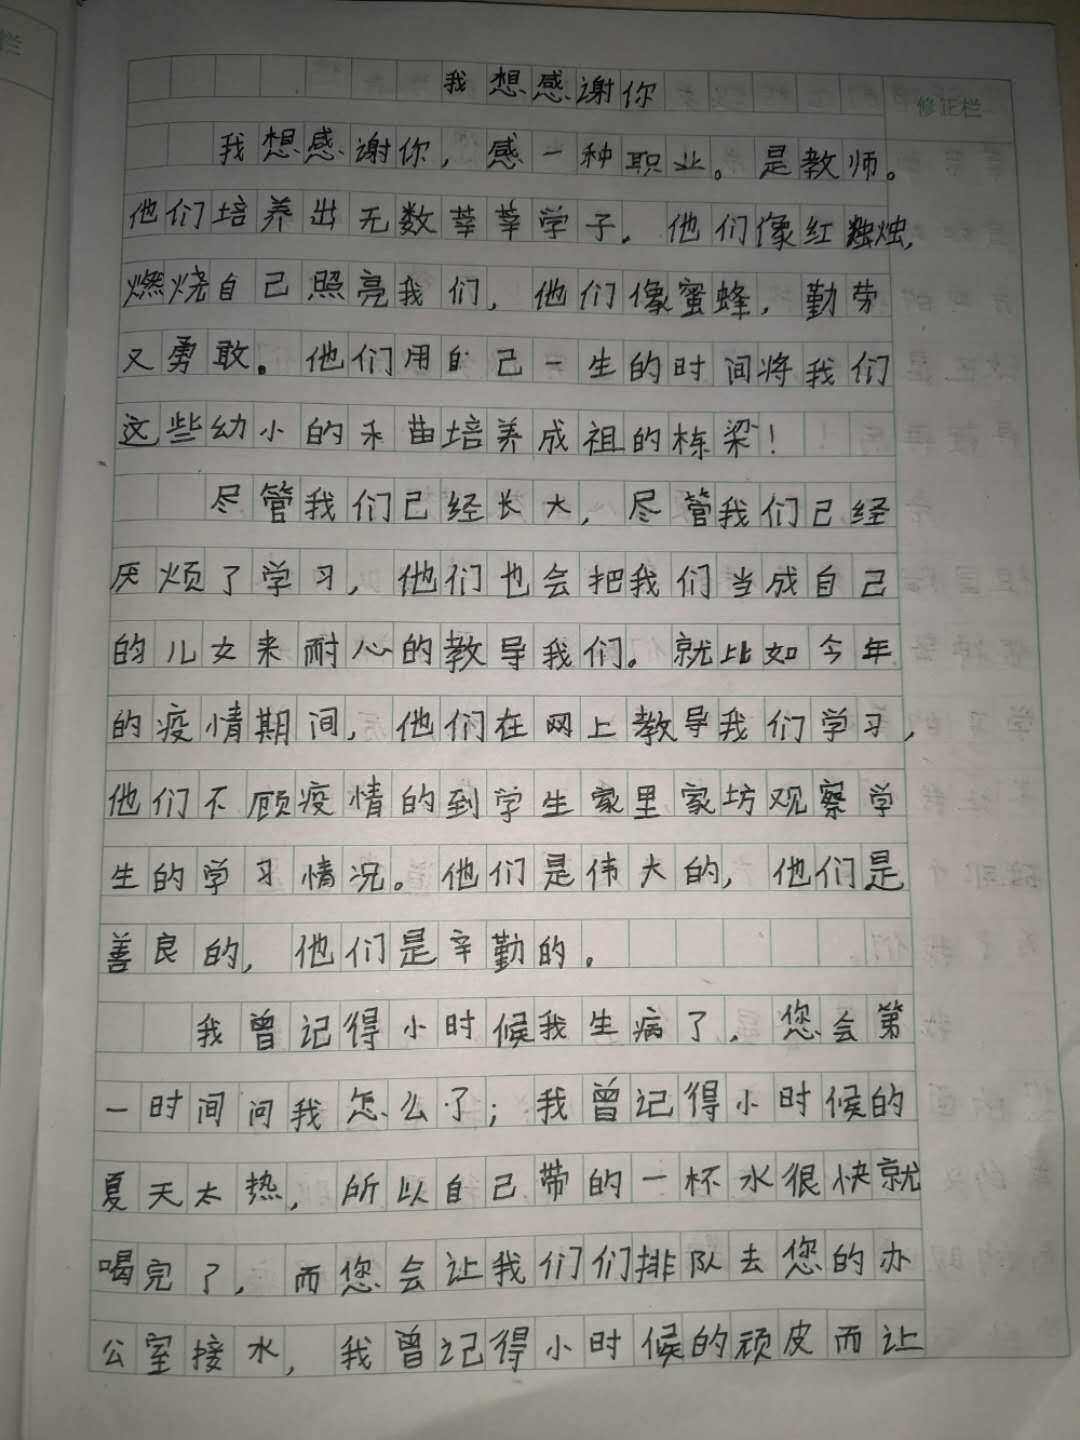 我想感谢你
修正栏
我想感谢你，感一种职业。是教师。
他们培养出无数莘莘学子。他们像红烛，
燃烧自己照亮我们，他们像蜜蜂，勤劳
又勇敢。他们用自己一生的时间将我们
这些幼小的禾苗培养成祖的栋梁！
尽管我们已经长大，尽管我们已经
厌烦了学习，他们也会把我们当成自己
的儿女来耐心的教导我们。就比如今年
的疫情期间，他们在网上教导我们学习，
他们不顾疫情的到学生家里家坊观察学
生的学习情况。他们是伟大的，他们是
善良的，他们是辛勤的。
我曾记得小时候我生病了，您会第
一时间问我怎么了；我曾记得小时候的
夏天太热，所以自己带的一杯水很快就
喝完了，而您会让我们们排队去您的办
公室接水，我曾记得小时候的顽皮而让